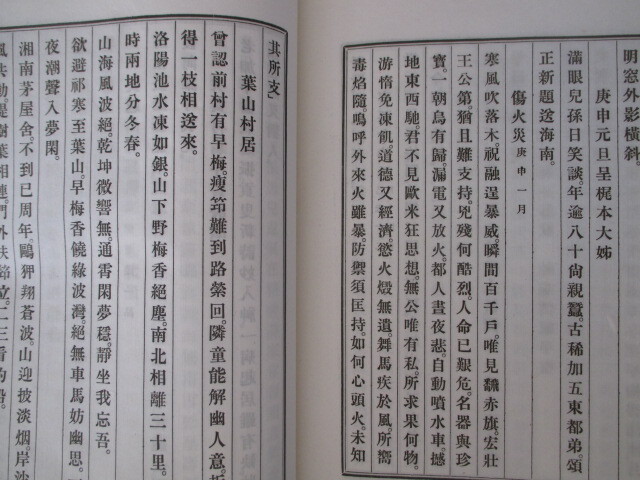 明窓外影橫斜。
庚申元旦呈梶本大姊
滿眼兒孫日笑談。年逾八十尙親蠶。古稀加五東都弟。頌
正新題送海南。
傷火災 庚申一月
寒風吹落木。祝融逞暴威。瞬間百千戶。唯見飜赤旗。宏壯
王公第。猶且難支持。兇殘何酷烈。人命已艱危。名器與珍
寶。一朝烏有歸。漏電又放火。都人晝夜悲。自動噴水車。撼
地東西馳。君不見歐米狂思想。無公唯有私。所求果何物。
游惰免凍飢。道德又經濟。慾火燬無遺。舞馬疾於風。所嚮
毒焰隨。嗚呼外來火雖暴。防禦須匡持。如何心頭火。未知
其所支。
葉山村居
曾認前村有早梅。瘦筇難到路縈回。隣童能解幽人意。折
得一枝相送來。
洛陽池水凍如銀。山下野梅香絕塵。南北相離三十里。
時兩地分冬春。
山海風波絕。乾坤微響無。通霄閑夢穩。靜坐我忘吾。
欲避祁寒至葉山。早梅香饒綠波灣。絕無車馬妨幽思。
夜潮聲入夢閑。
湘南茅屋舍。不到已周年。鷗狎翔蒼波。山迎披淡烟。岸沙
風共動。是樹葉相連。門外扶筇立。二三看釣船。